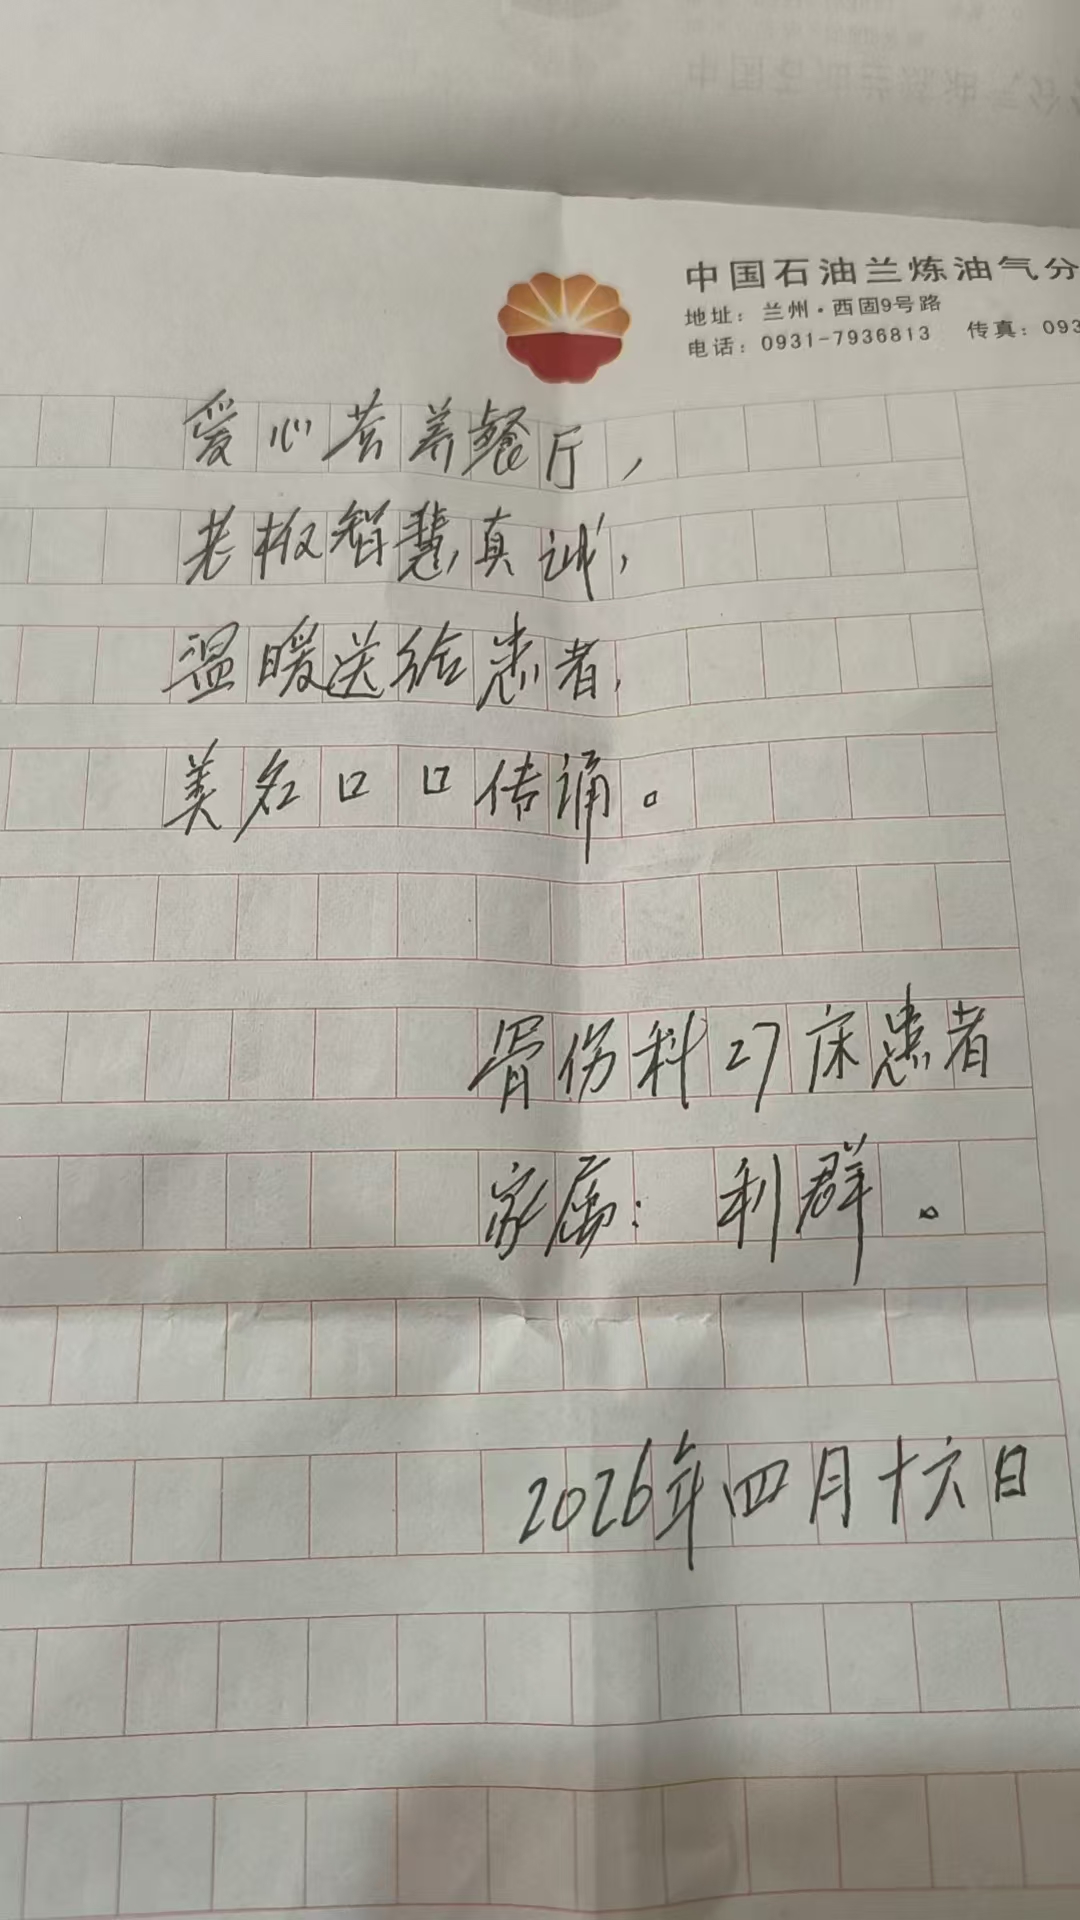 中国石油兰炼油气分
地址：兰州·西固9号路
电话：0931-7936813 传真：093
爱心营养餐厅，
老板智慧真诚，
温暖送给患者，
美名口口传诵。
骨伤科27床患者
家属：利群。
2026年四月十六日